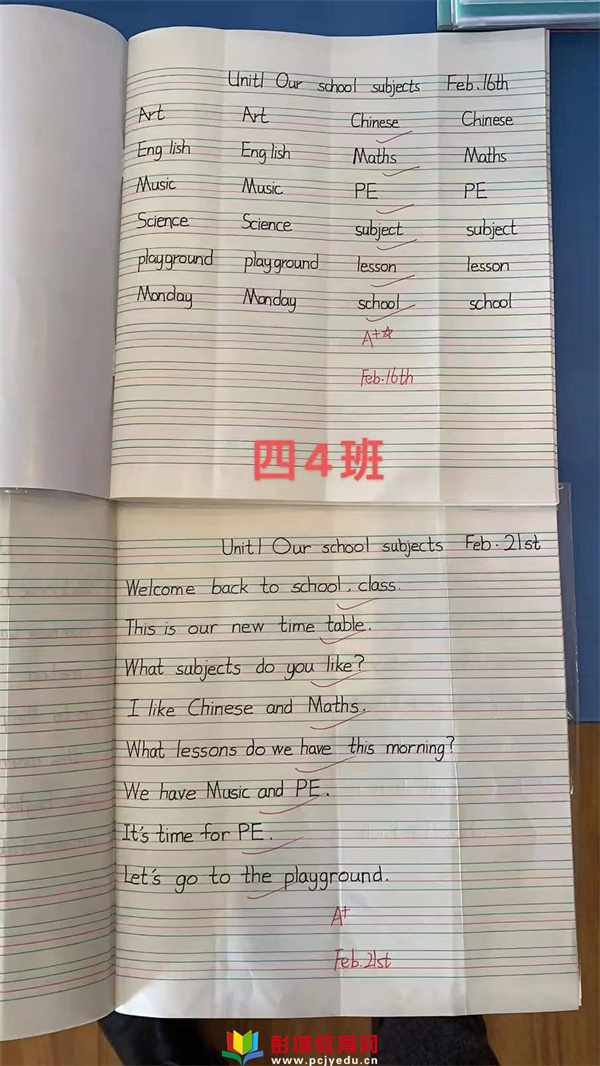 Unit1 Our school subjects Feb.16th
Art Art Chinese Chinese
English English Maths Maths
Music Music PE PE
Science Science subject subject
playground playground lesson lesson
Monday Monday school school
A+☆
Feb.16th
四4班
Unit1 Our school subjects Feb.21st
Welcome back to school, class.
This is our new time table.
What subjects do you like?
I like Chinese and Maths.
What lessons do we have this morning?
We have Music and PE.
It's time for PE.
Let's go to the playground.
A+
Feb.21st
彭城教育网
www.pcjyedu.cn